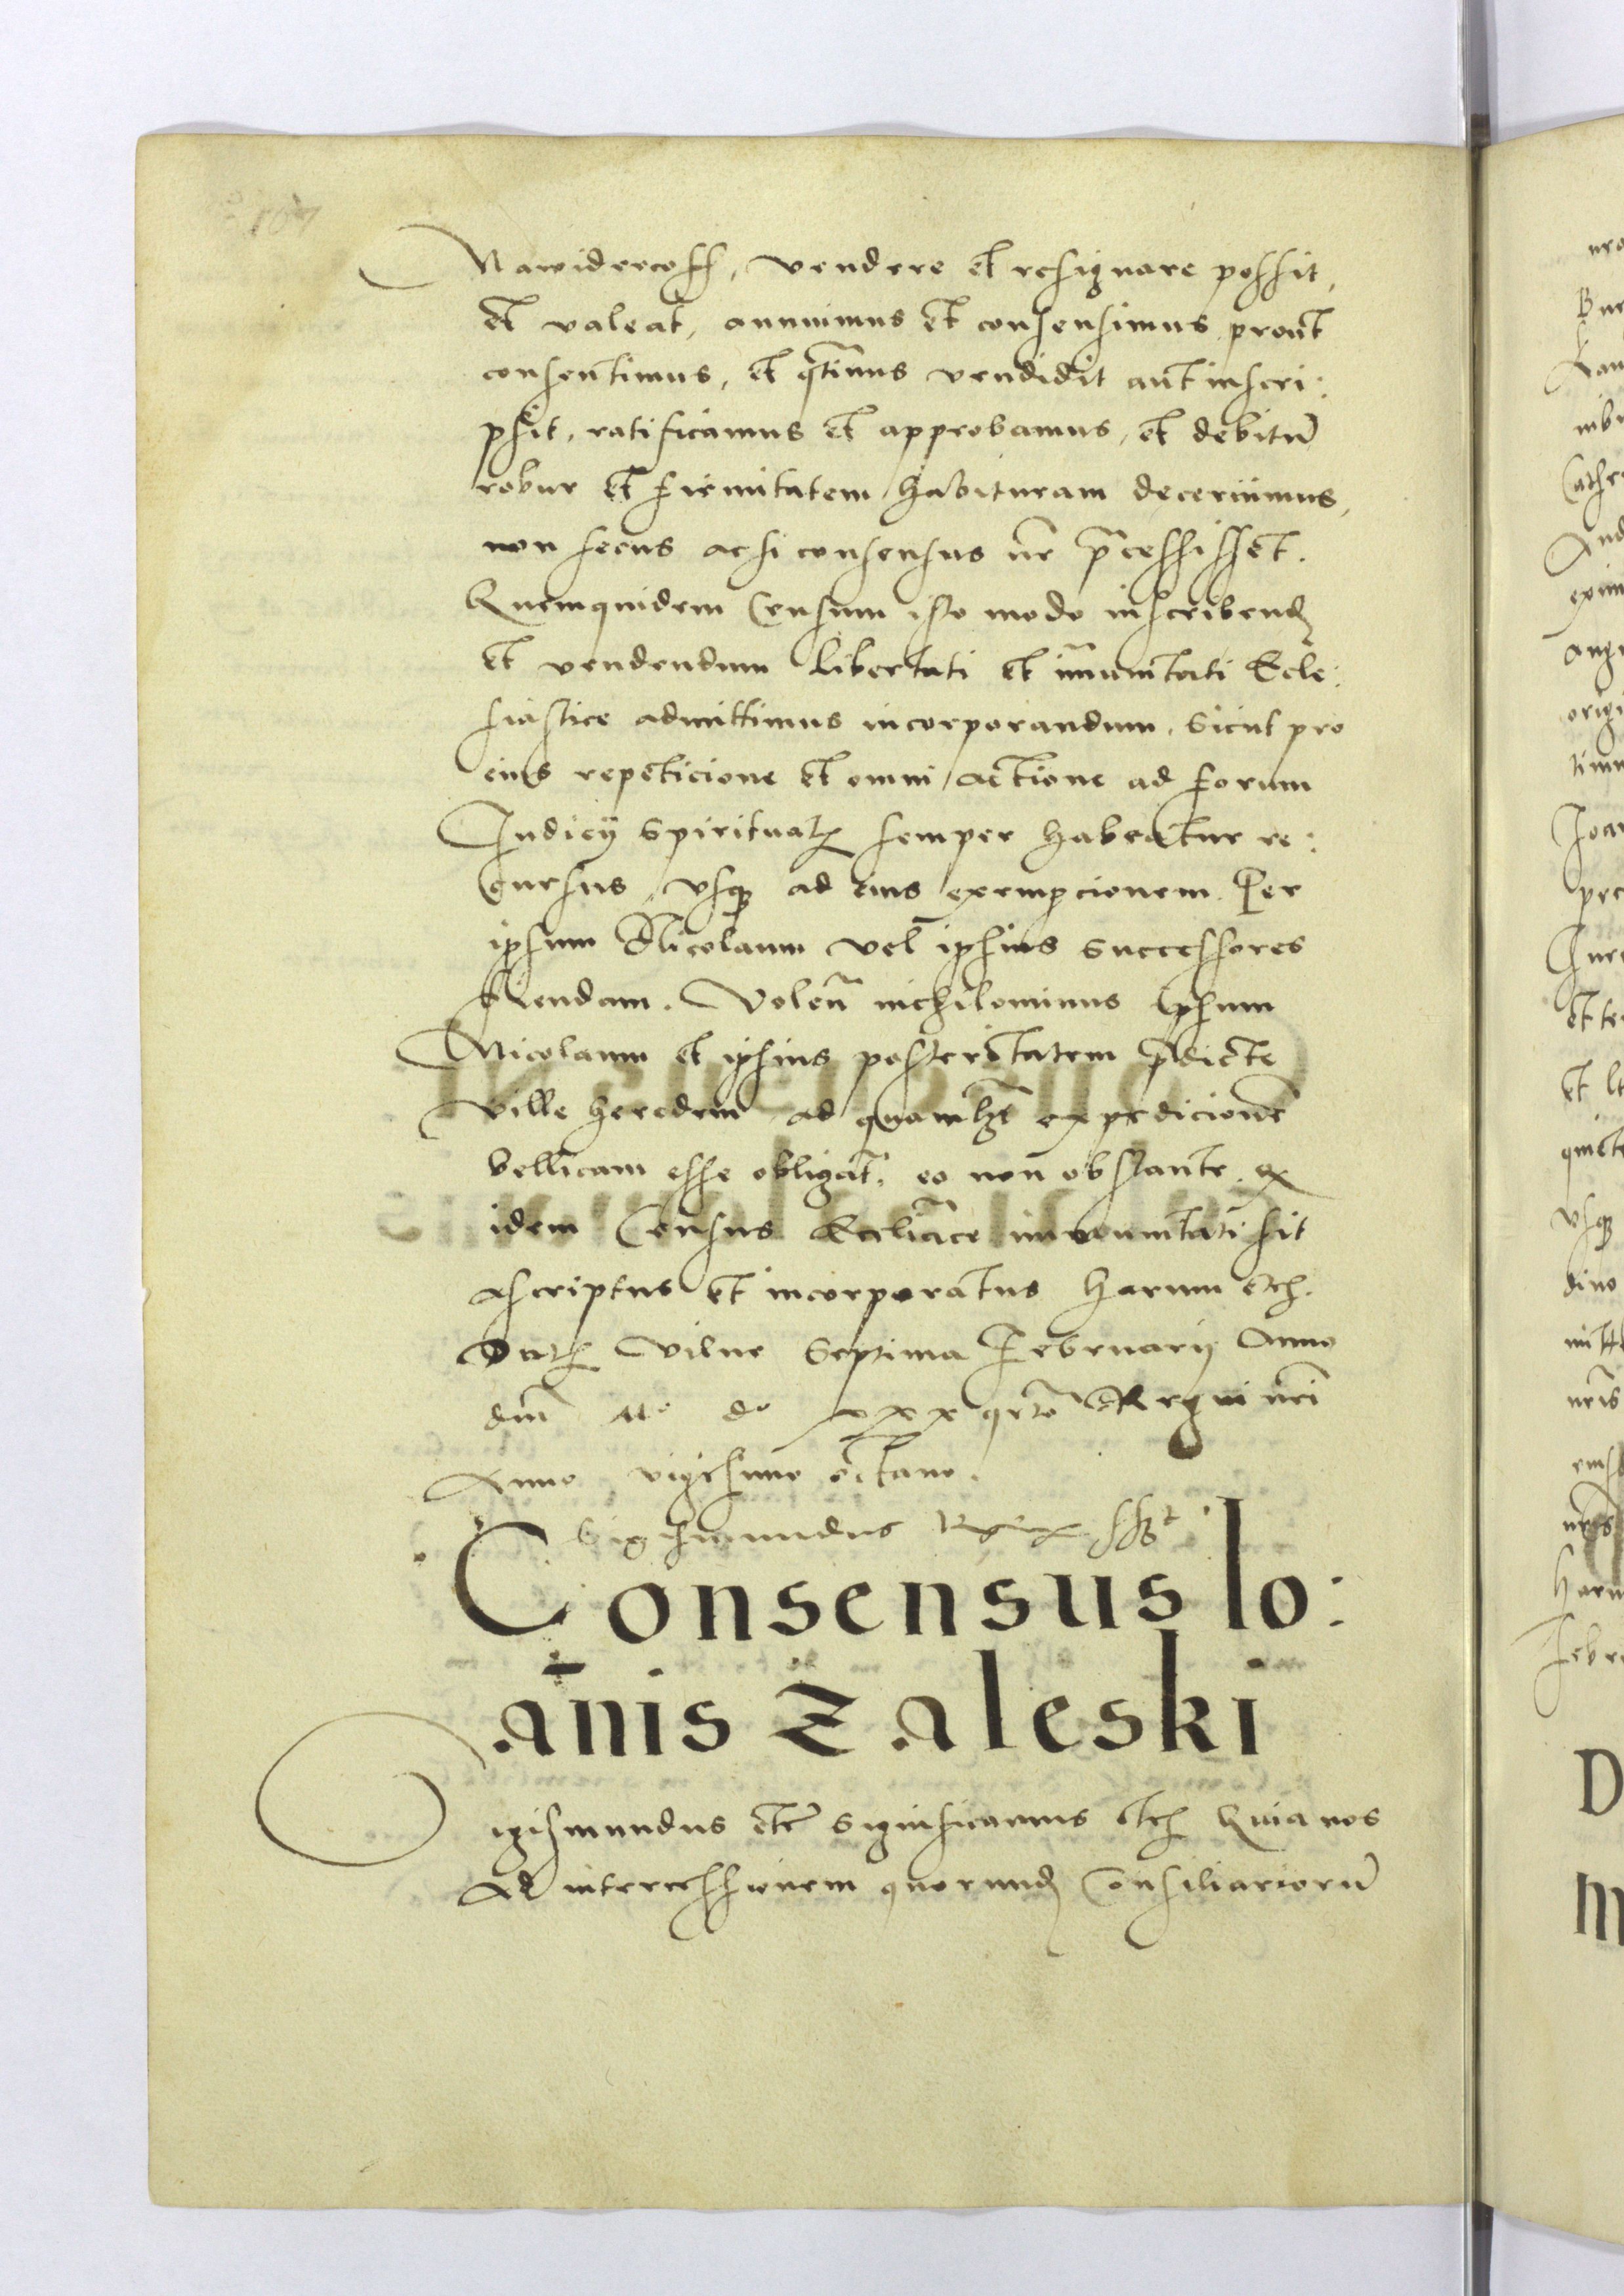 Nawidercoss, vendere et resignare possit,
et valeat, annuimus et consensimus prout
consentimus, et qtinus vendidit aut inscri:
psit, ratificamus et approbamus, et debitū
robur et firmitatem habituram decernimus,
non secus ac si consensus nr̄ p̄cessisset.
Quemquidem Censum isto modo inscribend
et vendendum libertati et im̄unitati Eccle:
siastice admittimus incorporandum. Sicut pro
eius repeticione et omni actione ad forum
Judicij Spiritual semper habeatur re:
cursus, vsq ad eius exempcionem. Per
ipsum Nicolaum vel ipsius successores
fiendam. Volen̄ nichilominus Ipsum
Nicolaum et ipsius posteritatem p̄dicte
ville heredem ad quamlzt expedicionē
bellicam esse obligat̄. eo non obstante. q
idem Census Eccliāce immunitati sit
ascriptus et incorporatus harum etc.
Dat Vilne Septima Februarij Anno
dn̄i Mo do xxx qrto Regni nr̄i
Anno vigesimo octavo.
Sigismundus Rex sst
Consensus Io:
ān̄is Zaleski
igismundus etc Significamus etc Quia nos
Ad intercessionem quorund Consiliariorū